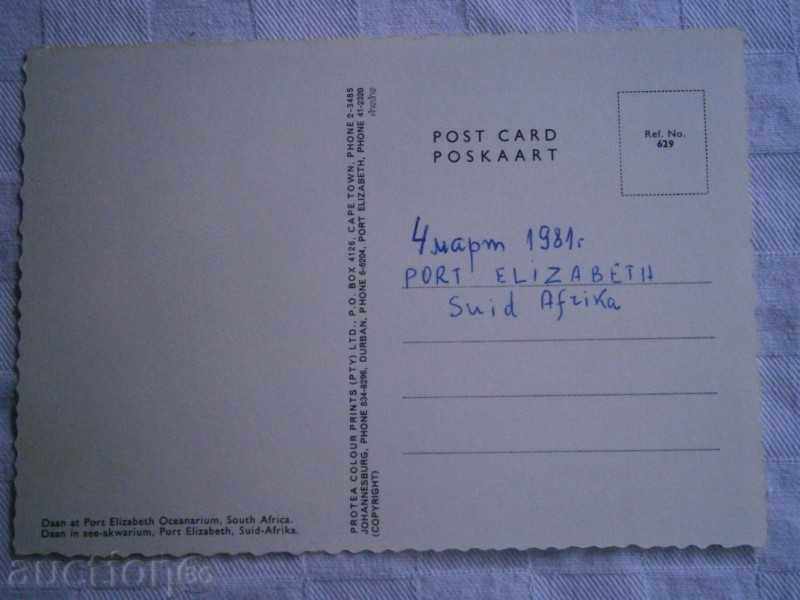 POST CARD
POSKAART
Ref. No.
629
4 март 1981г
PORT ELIZABETH
Suid Afrika
PROTEA COLOUR PRINTS (PTY) LTD., P.O. BOX 4126, CAPE TOWN, PHONE 2-3485
JOHANNESBURG, PHONE 834-8296, DURBAN, PHONE 6-6204, PORT ELIZABETH, PHONE 41-2320
(COPYRIGHT)
Daan at Port Elizabeth Oceanarium, South Africa.
Daan in see-akwarium, Port Elizabeth, Suid-Afrika.